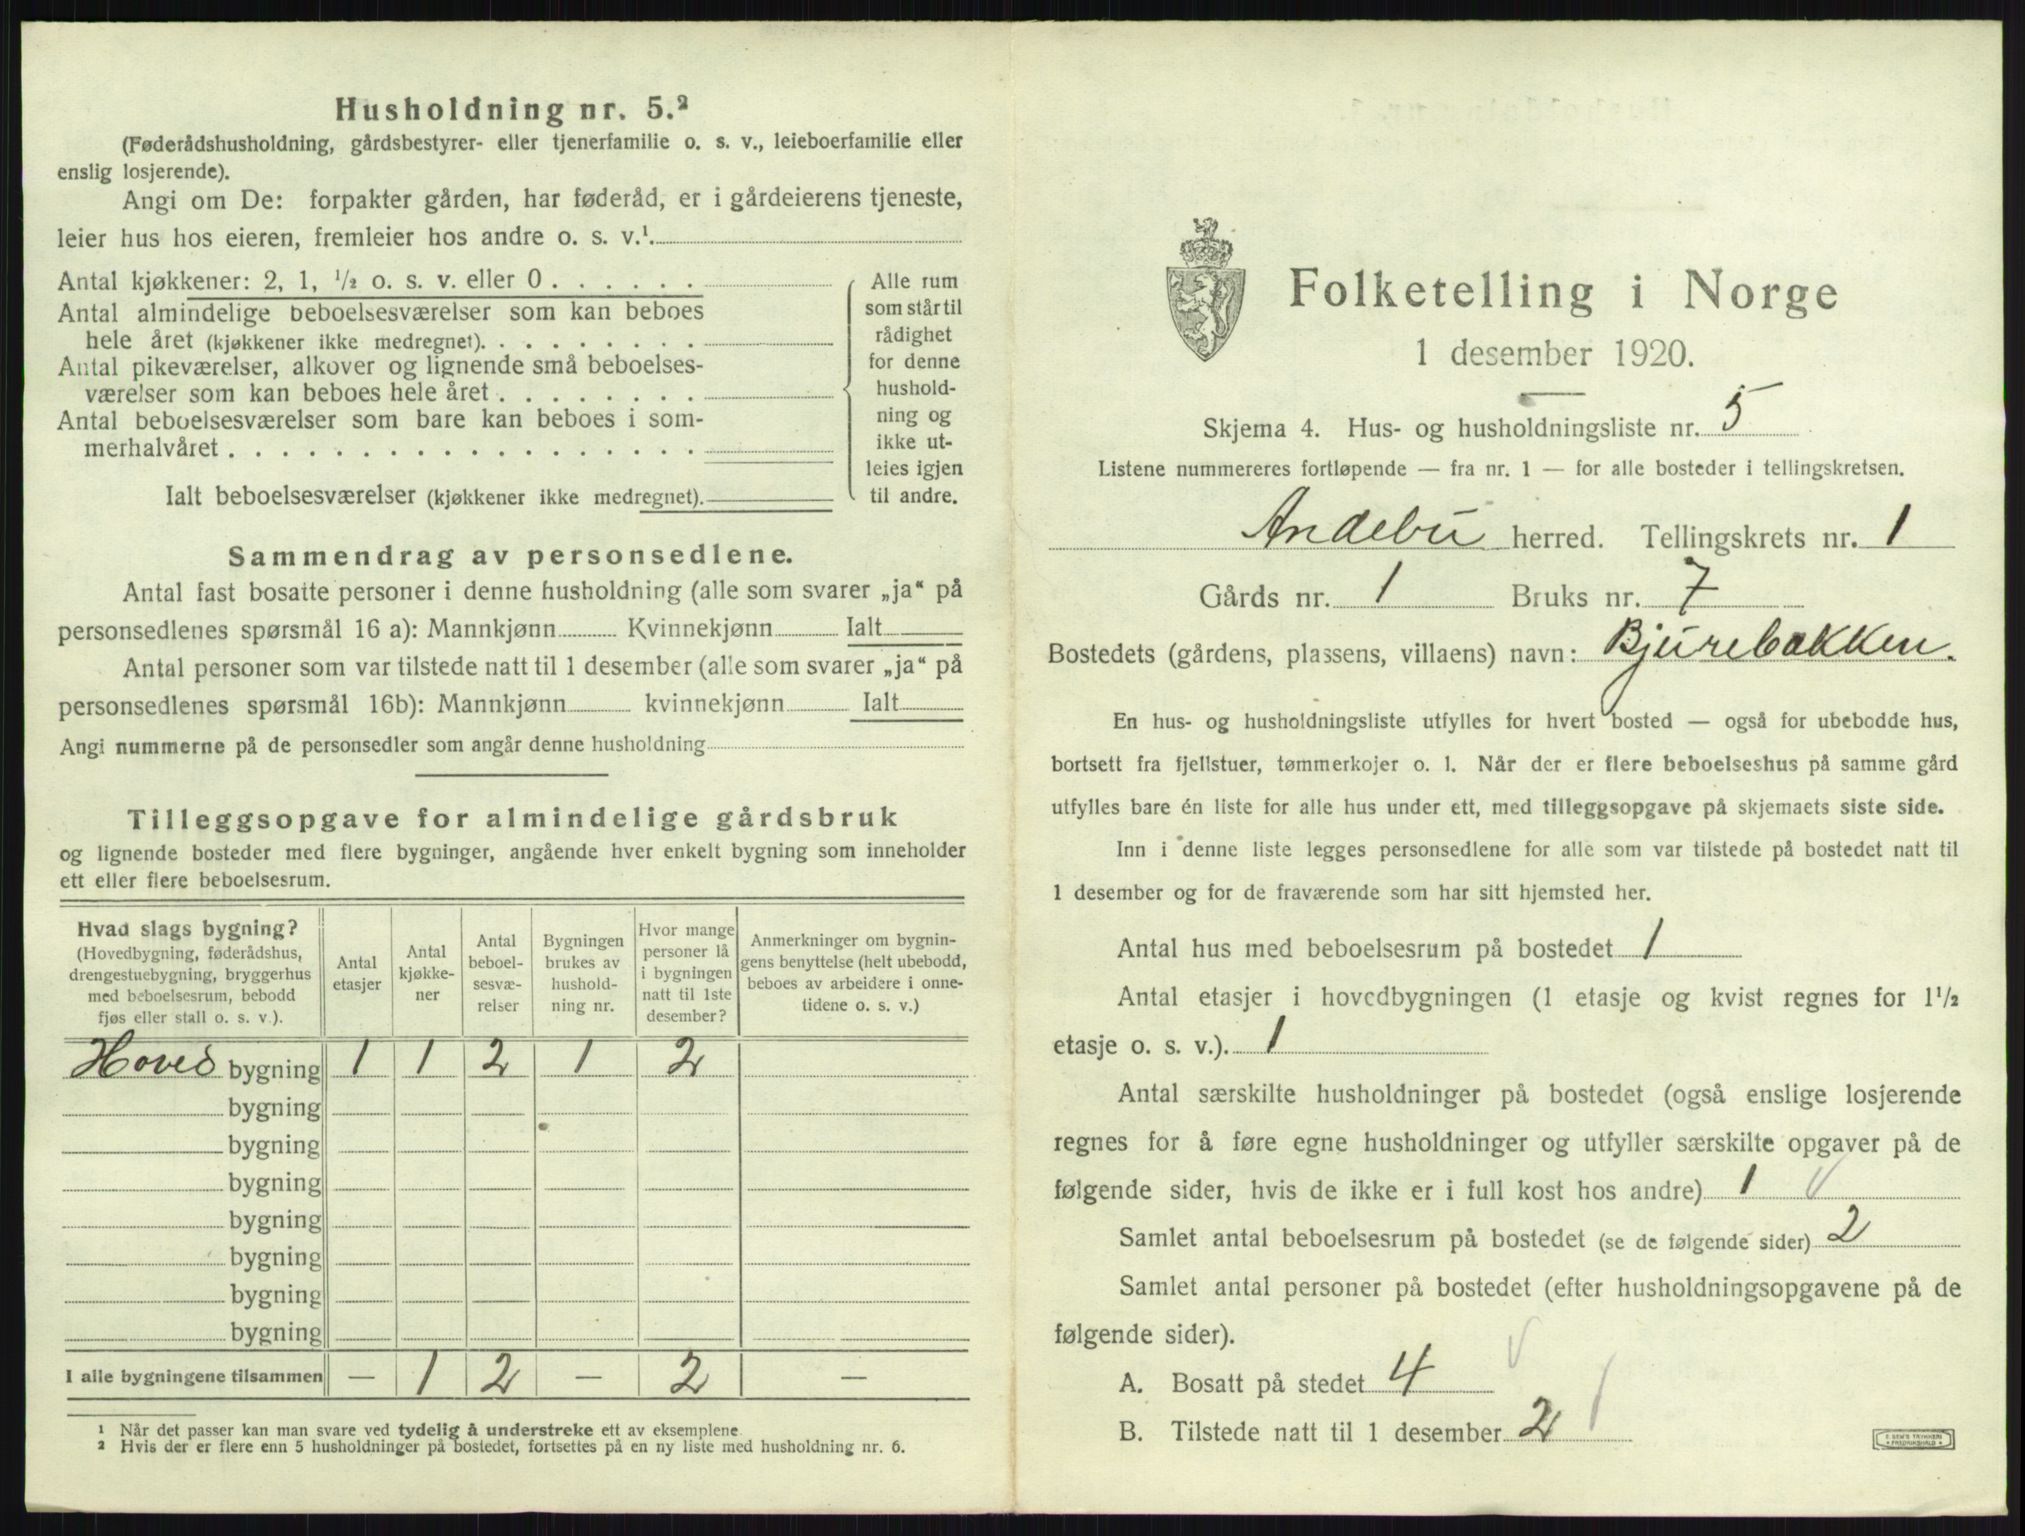 Husholdning nr. 5.²
(Føderådshusholdning, gårdsbestyrer- eller tjenerfamilie o. s. v., leieboerfamilie eller
enslig losjerende).
Angi om De: forpakter gården, har føderåd, er i gårdeierens tjeneste,
leier hus hos eieren, fremleier hos andre o. s. v.¹.
Antal kjøkkener: 2, 1, ½ o. s. v. eller 0 . . . . . .
Antal almindelige beboelsesværelser som kan beboes
hele året (kjøkkener ikke medregnet). . . . . . . . .
Antal pikeværelser, alkover og lignende små beboelses-
værelser som kan beboes hele året . . . . . . . .
Antal beboelsesværelser som bare kan beboes i som-
merhalvåret . . . . . . . . . . . . . . . . . .
Ialt beboelsesværelser (kjøkkener ikke medregnet).
Alle rum
som står til
rådighet
for denne
hushold-
ning og
ikke ut-
leies igjen
til andre.
Sammendrag av personsedlene.
Antal fast bosatte personer i denne husholdning (alle som svarer „ja“ på
personsedlenes spørsmål 16 a): Mannkjønn Kvinnekjønn Ialt
Antal personer som var tilstede natt til 1 desember (alle som svarer „ja“ på
personsedlenes spørsmål 16b): Mannkjønn kvinnekjønn Ialt
Angi nummerne på de personsedler som angår denne husholdning
Tilleggsopgave for almindelige gårdsbruk
og lignende bosteder med flere bygninger, angående hver enkelt bygning som inneholder
ett eller flere beboelsesrum.
Hvad slags bygning?
(Hovedbygning, føderådshus,
drengestuebygning, bryggerhus
med beboelsesrum, bebodd
fjøs eller stall o. s. v.).
Antal
etasjer
Antal
kjøkke-
ner
Antal
beboel-
sesvæ-
relser
Bygningen
brukes av
hushold-
ning nr.
Hvor mange
personer lå
i bygningen
natt til 1ste
desember?
Anmerkninger om bygnin-
gens benyttelse (helt ubebodd,
beboes av arbeidere i onne-
tidene o. s. v.)
Hoved bygning 1 1 2 1 2
bygning
bygning
bygning
bygning
bygning
bygning
bygning
I alle bygningene tilsammen — 1 2 — 2 —
¹ Når det passer kan man svare ved tydelig å understreke ett av eksemplene
² Hvis der er flere enn 5 husholdninger på bostedet, fortsettes på en ny liste med husholdning nr. 6.
Folketelling i Norge
1 desember 1920.
Skjema 4. Hus- og husholdningsliste nr. 5
Listene nummereres fortløpende — fra nr. 1 — for alle bosteder i tellingskretsen.
Andebu herred. Tellingskrets nr. 1
Gårds nr. 1 Bruks nr. 7
Bostedets (gårdens, plassens, villaens) navn: Bjurebakken.
En hus- og husholdningsliste utfylles for hvert bosted — også for ubebodde hus,
bortsett fra fjellstuer, tømmerkojer o. l. Når der er flere beboelseshus på samme gård
utfylles bare én liste for alle hus under ett, med tilleggsopgave på skjemaets siste side.
Inn i denne liste legges personsedlene for alle som var tilstede på bostedet natt til
1 desember og for de fraværende som har sitt hjemsted her.
Antal hus med beboelsesrum på bostedet 1
Antal etasjer i hovedbygningen (1 etasje og kvist regnes for 1½
etasje o. s. v.). 1
Antal særskilte husholdninger på bostedet (også enslige losjerende
regnes for å føre egne husholdninger og utfyller særskilte opgaver på de
følgende sider, hvis de ikke er i full kost hos andre) 1
Samlet antal beboelsesrum på bostedet (se de følgende sider) 2
Samlet antal personer på bostedet (efter husholdningsopgavene på de
følgende sider).
A. Bosatt på stedet 4
B. Tilstede natt til 1 desember 2